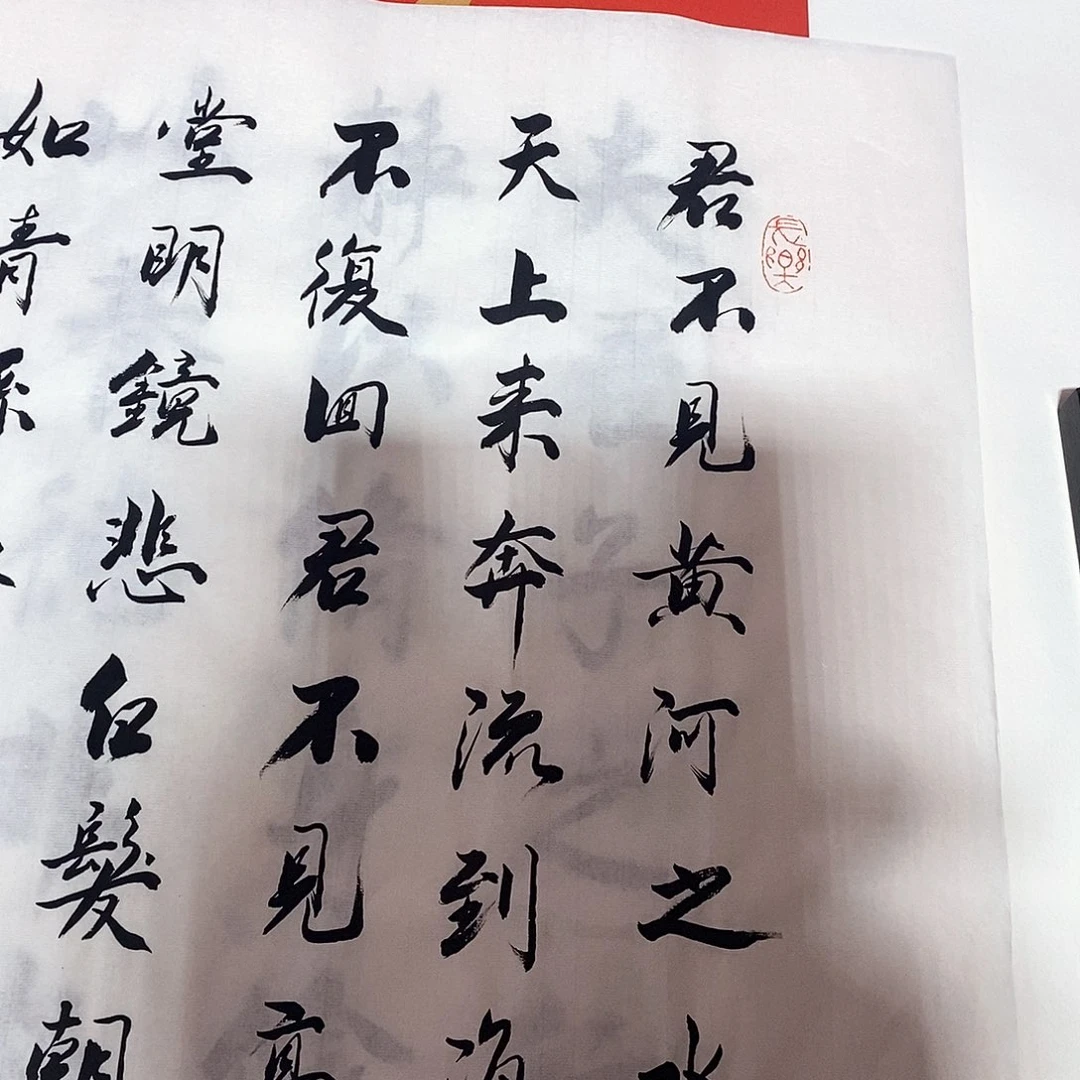 君不見黄河之水
天上来奔流到海
不復回君不見高
堂明鏡悲白髮朝
如青
長樂